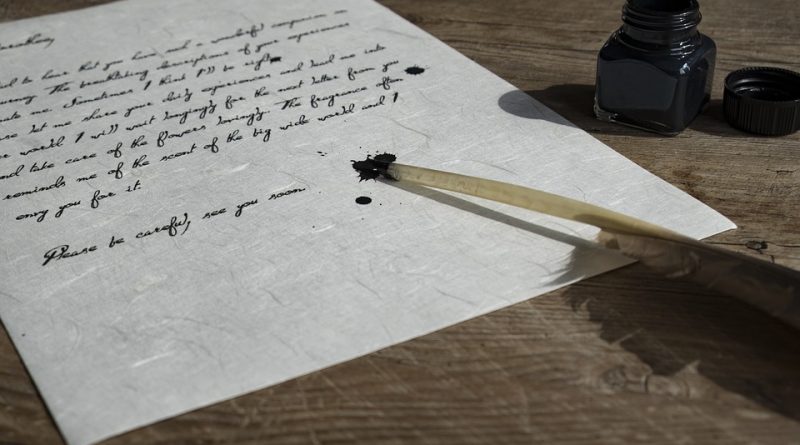 to hear that you have such a wonderful companion on
The breathtaking descriptions of your experiences
me. Sometimes I think I'll be right
let me share your daily experiences and lead me into
world. I will wait longingly for the next letter from you
and take care of the flowers lovingly. The fragrance often
reminds me of the scent of the big wide world and I
envy you for it.
Please be careful, see you soon.